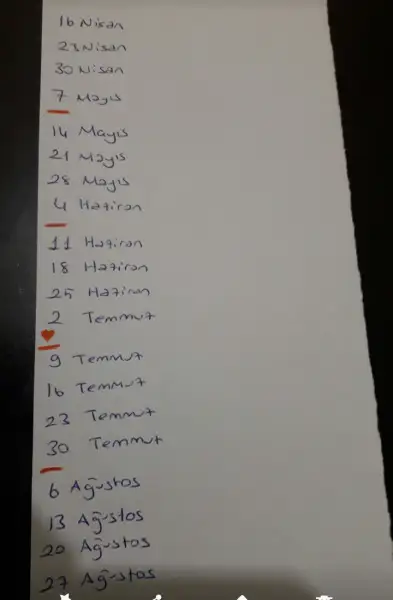 16 Nisan
23 Nisan
30 Nisan
7 Mayıs
14 Mayıs
21 Mayıs
28 Mayıs
4 Haziran
11 Haziran
18 Haziran
25 Haziran
2 Temmuz
9 Temmuz
16 Temmuz
23 Temmuz
30 Temmuz
6 Ağustos
13 Ağustos
20 Ağustos
27 Ağustos